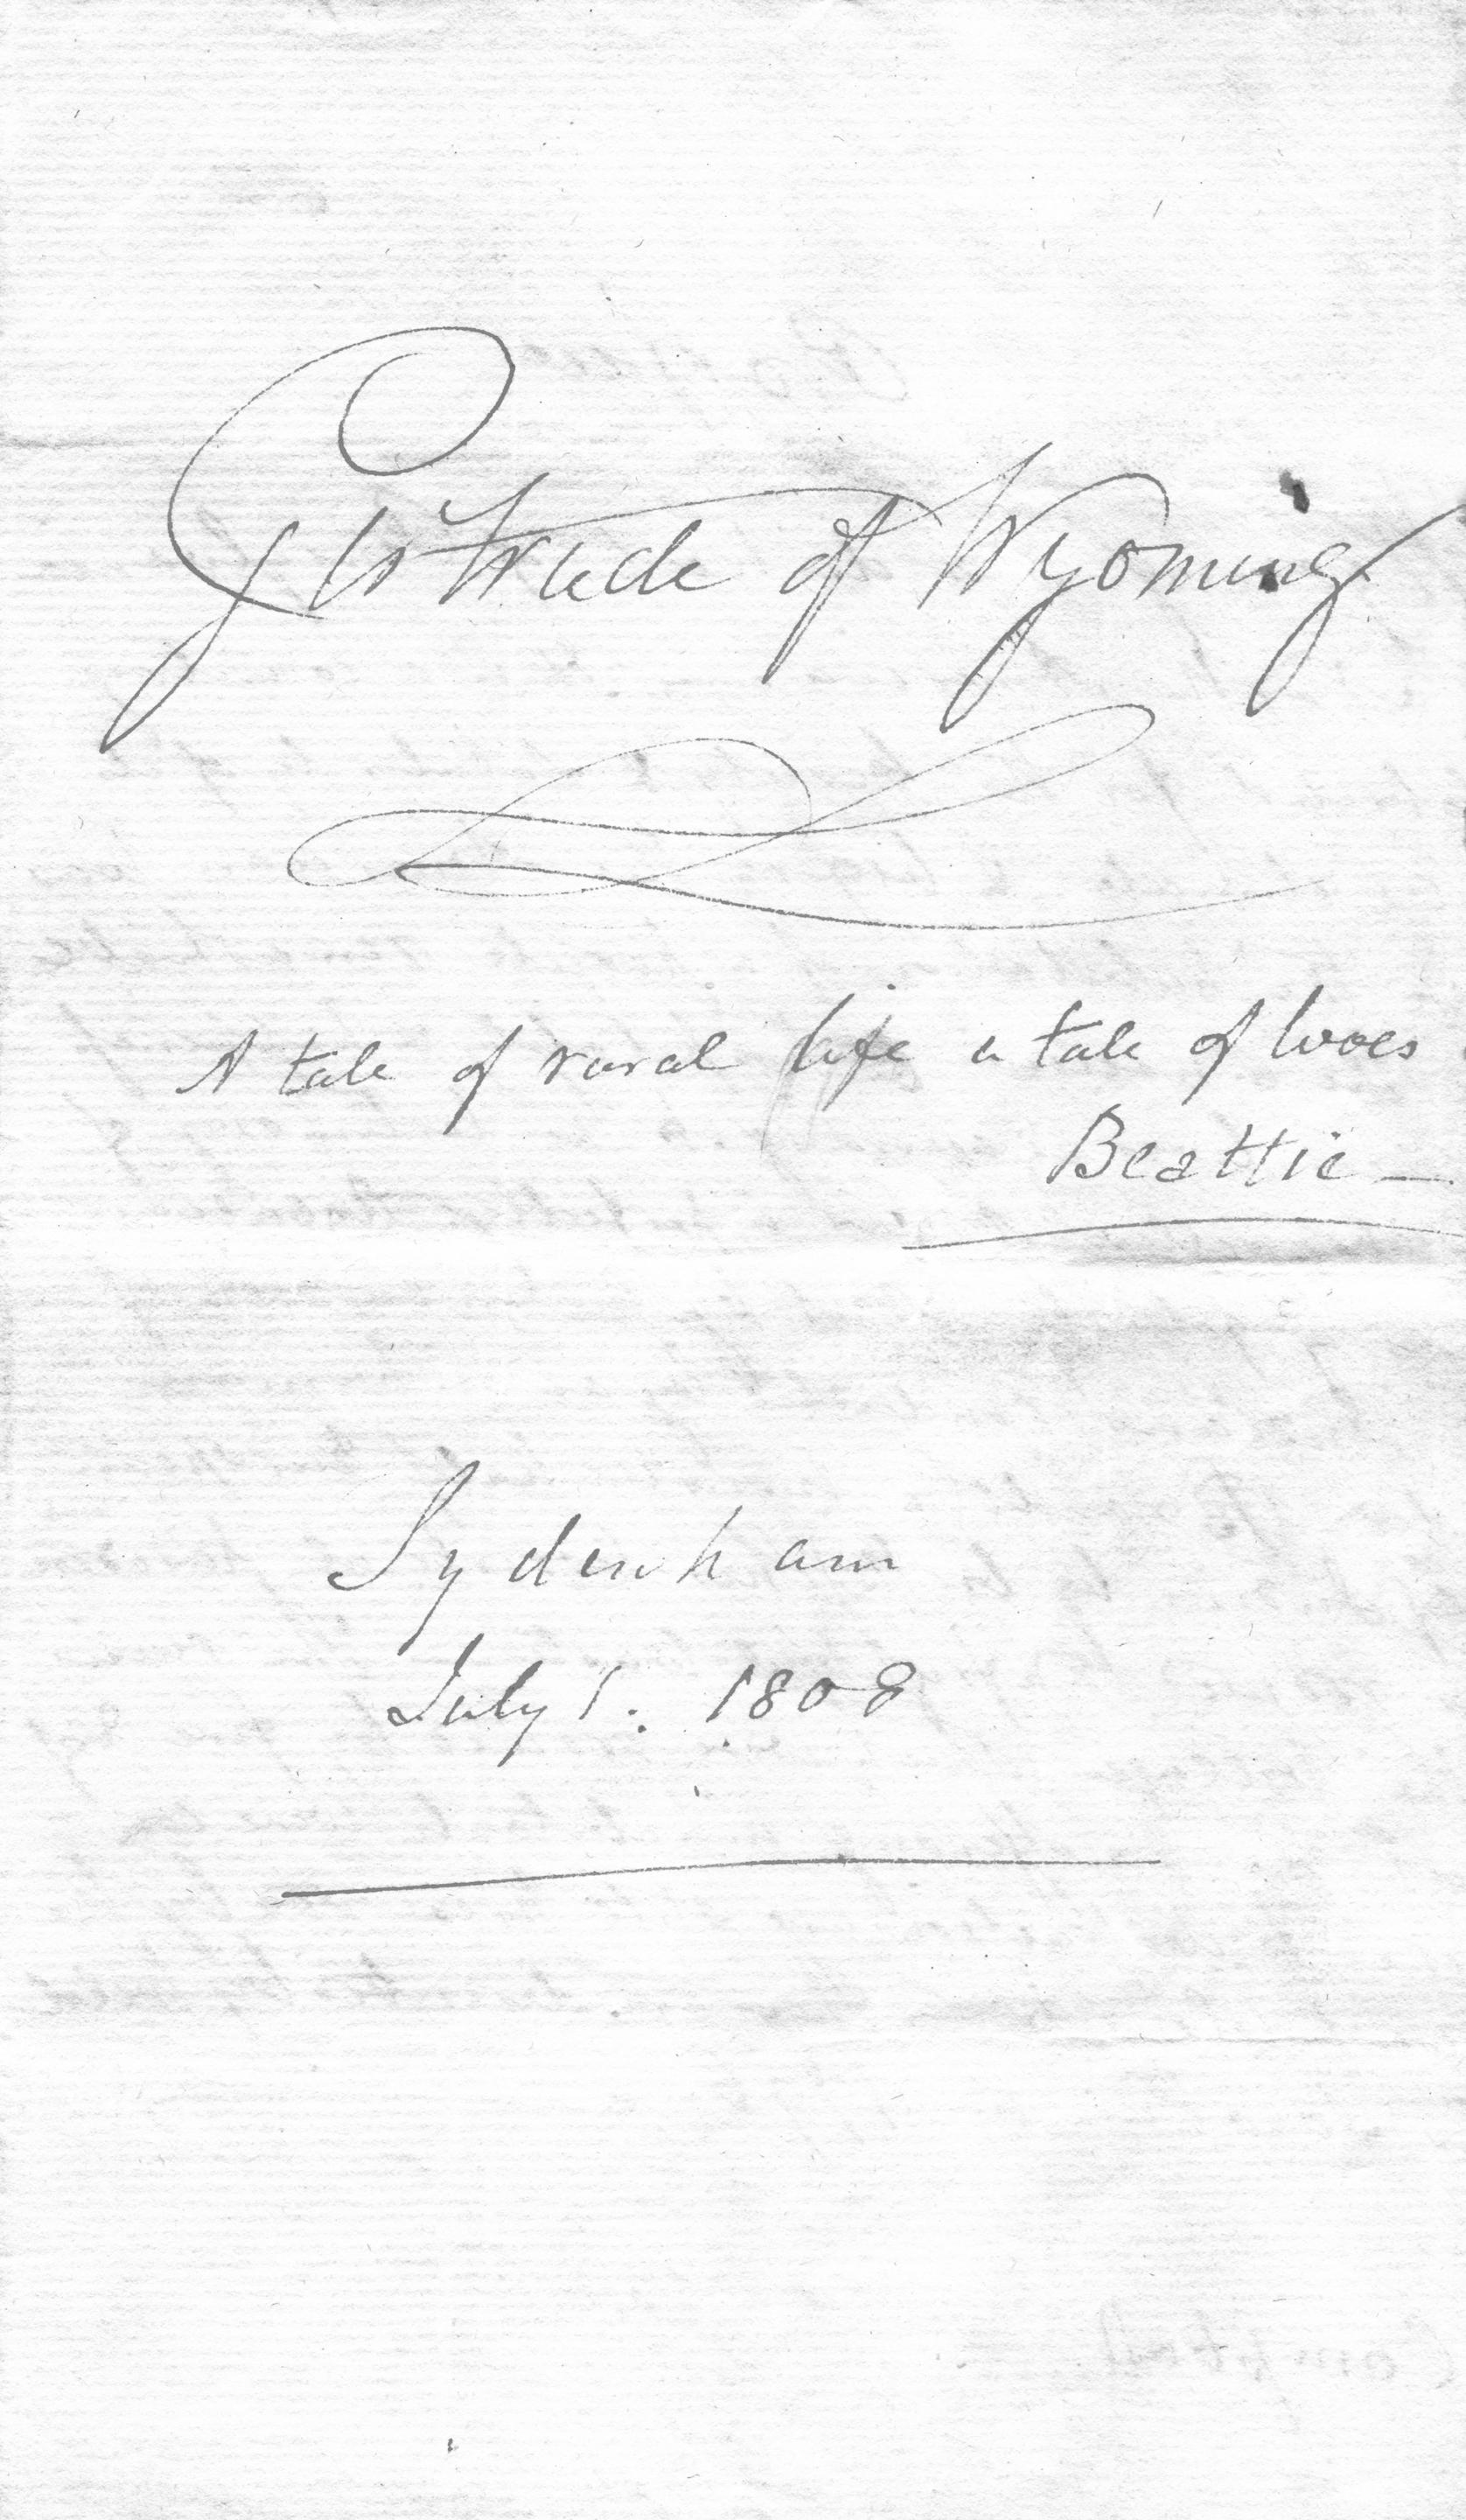 Gertrude of Wyoming
A tale of rural life a tale of woes
Beattie —
Sydenham
July 1. 1808